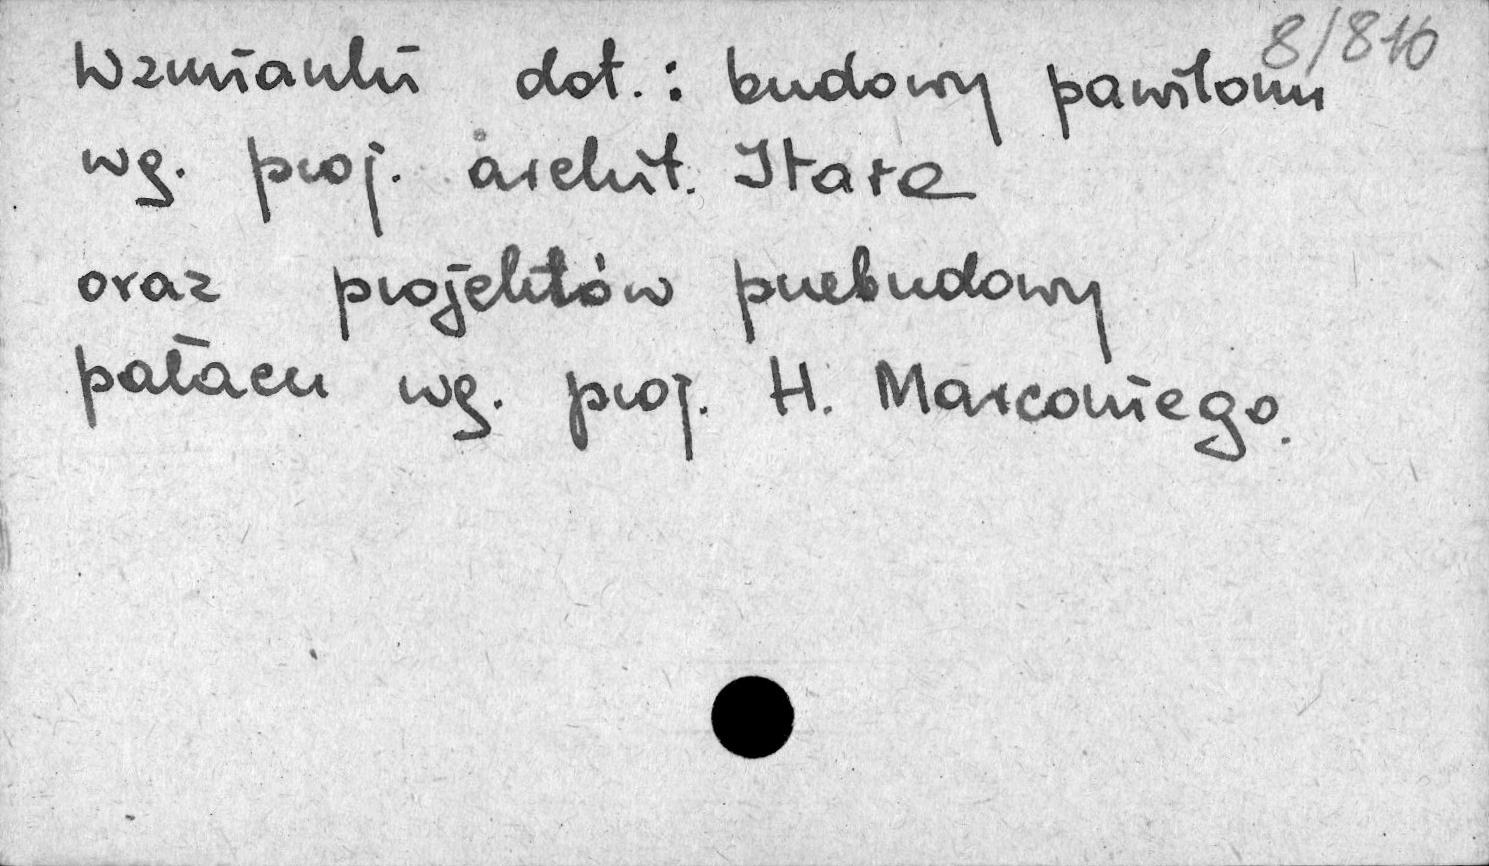 8/816
Wzmianki dot.: budowy pawilonu
wg. proj. archit. Itara
oraz projektów przebudowy
pałacu wg. proj. H. Marconiego.